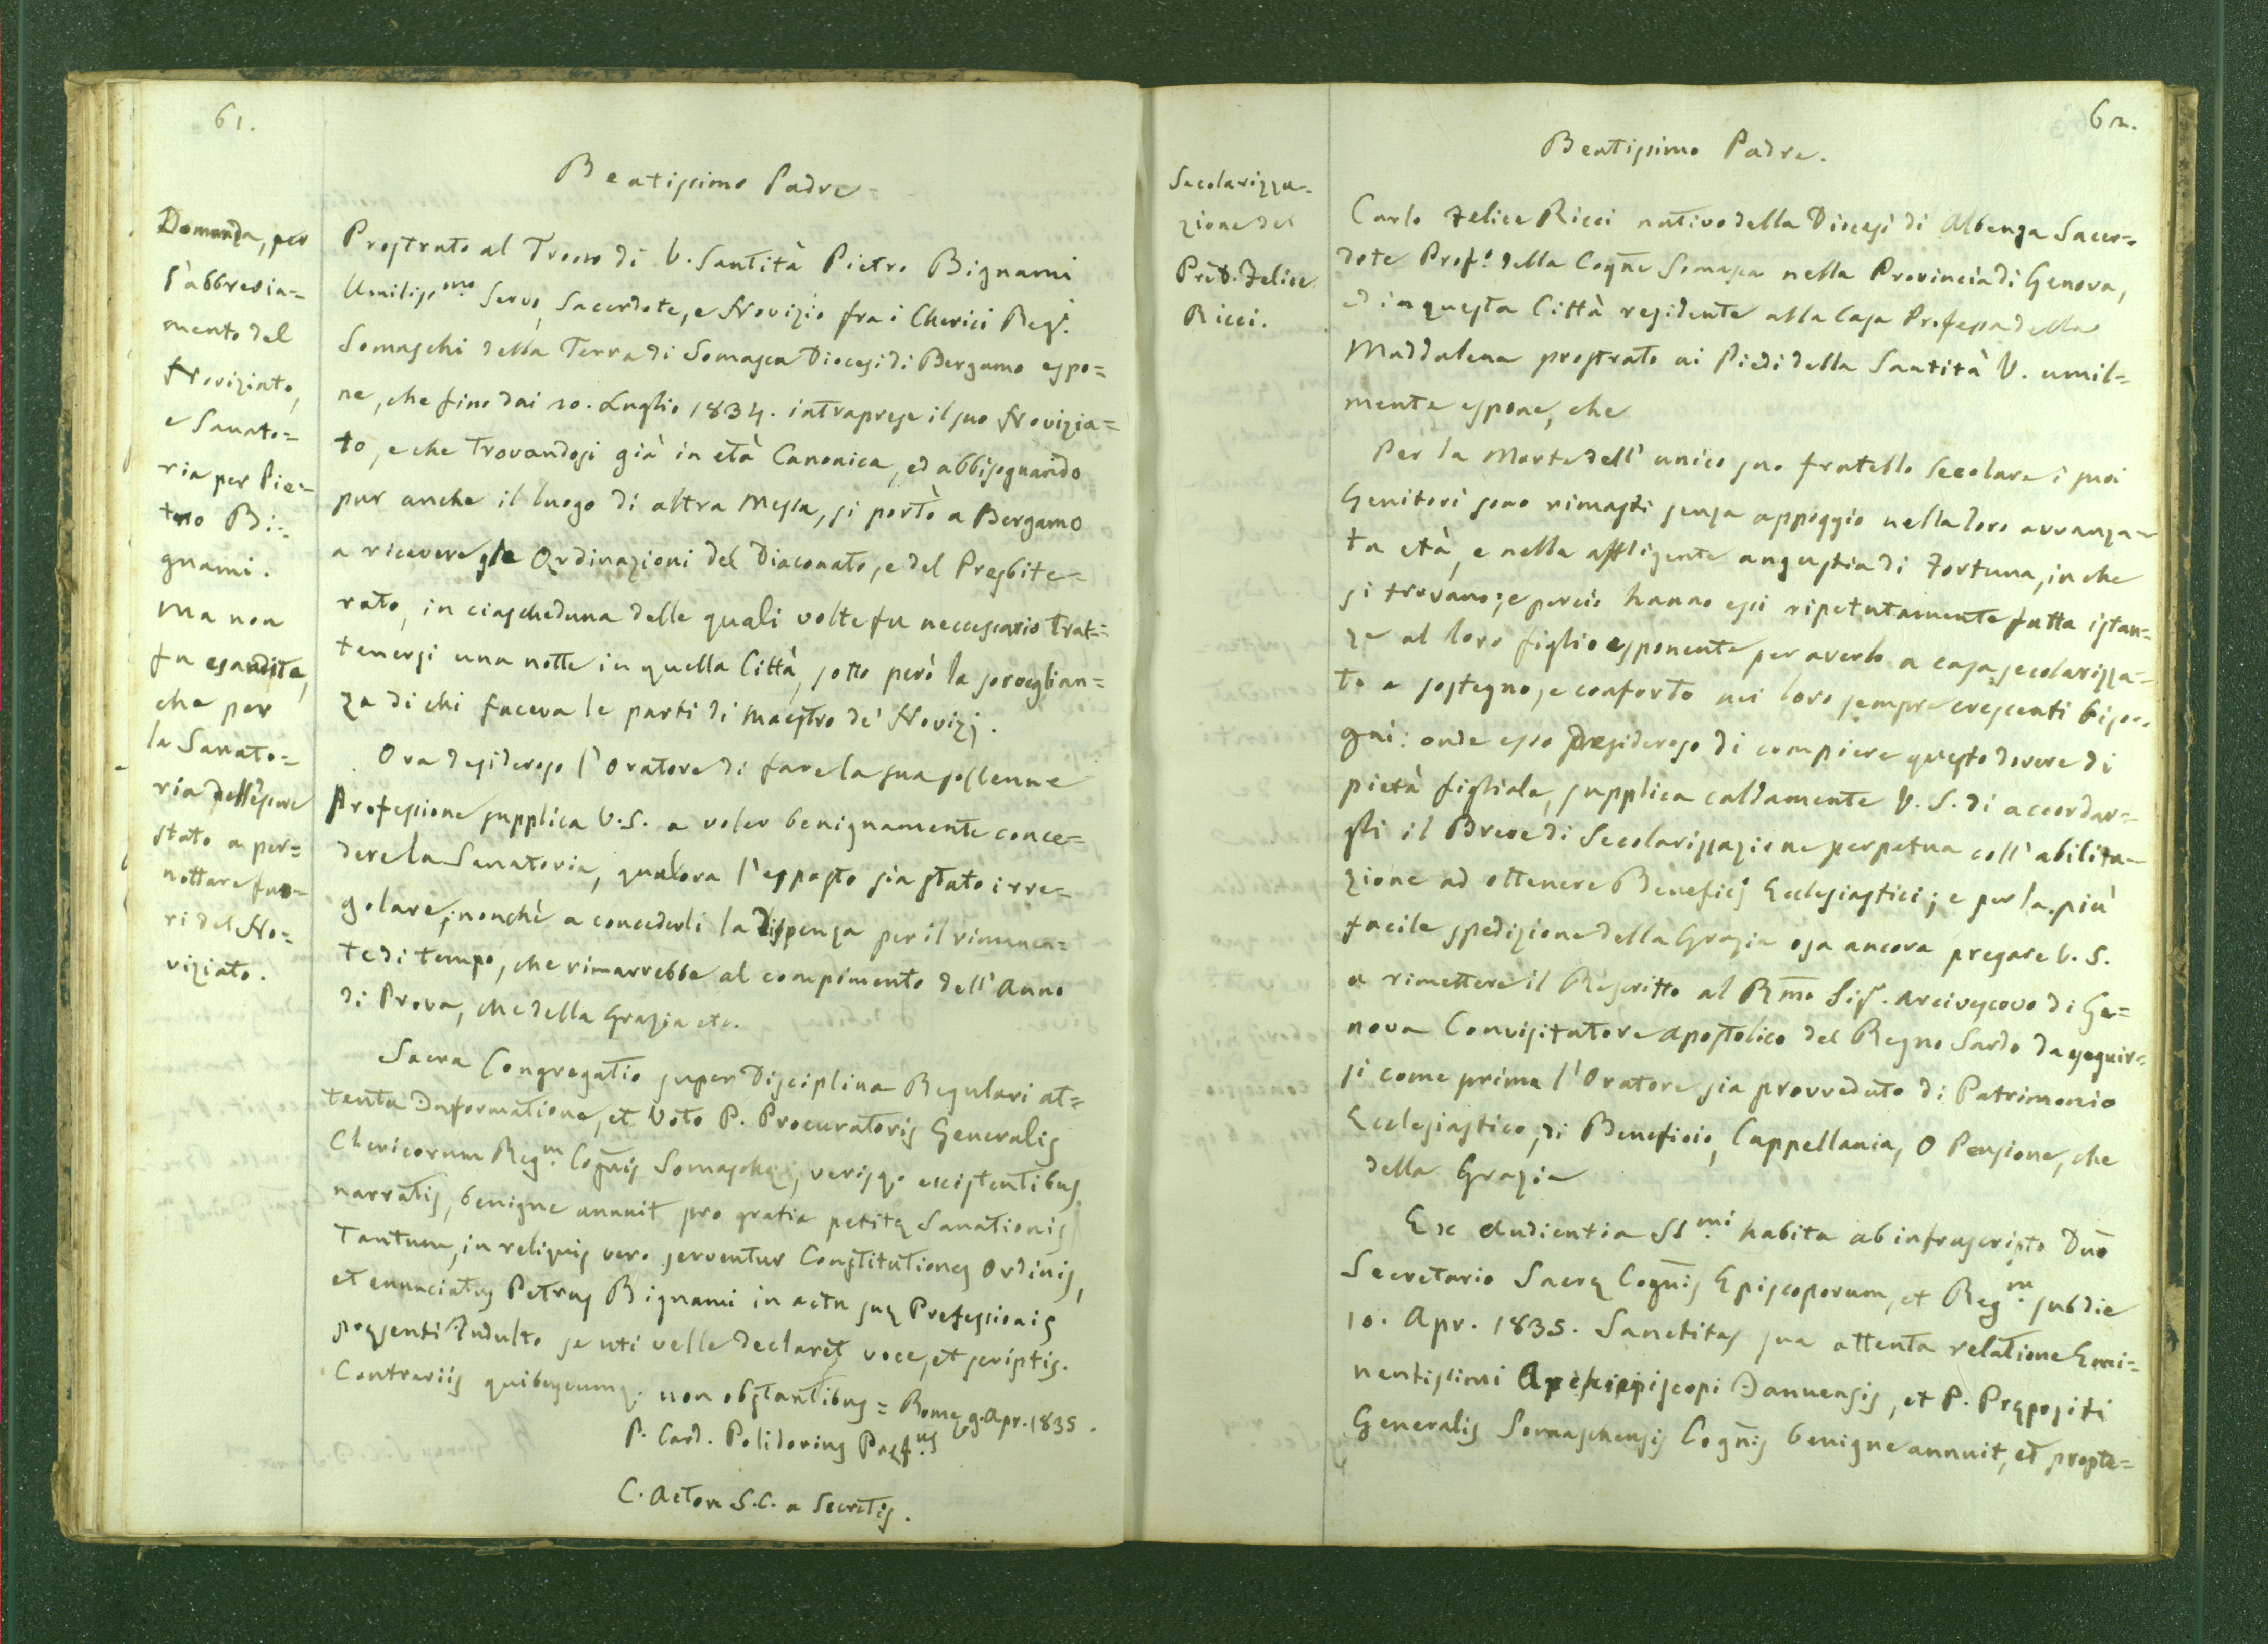 61.
Domanda, per
l'abbrevia=
mento del
Noviziato,
e Sanato=
ria per Pie=
tro Bi=
gnami.
Ma non
fu esaudita,
che per
la Sanato=
ria dell'essere
stato a per=
nottare fuo=
ri del No=
viziato.
Beatissimo Padre =
Prostrato al Trono di V. Santità Pietro Bignami
Umiliss.mo Servo, Sacerdote, e Novizio fra i Cherici Reg.i
Somaschi della Terra di Somasca Diocesi di Bergamo espo=
ne, che fino dai 20. Luglio 1834. intraprese il suo Novizia=
to, e che trovandosi già in età Canonica, ed abbisognando
pur anche il luogo di altra Messa, si portò a Bergamo
a ricevere le Ordinazioni del Diaconato, e del Presbite=
rato, in ciascheduna delle quali volte fu neccessario trat=
tenersi una notte in quella Città, sotto però la sorveglian=
za di chi faceva le parti di Maestro de' Novizj.
Ora desideroso l'Oratore di fare la sua sollenne
Professione supplica V.S. a voler benignamente conce=
dere la Sanatoria, qualora l'esposto sia stato irre=
golare, nonchè a concederli la dispenza per il rimanen=
te di tempo, che rimarrebbe al compimento dell'Anno
di Prova, che della Grazia etc.
Sacra Congregatio super Disciplina Regulari at=
tenta Informatione, et Voto P. Procuratoris Generalis
Clericorum Reg.m Cogñis Somaschę, verisq. existentibus
narratis, benigne annuit pro gratia petitę Sanationis
Tantum, in reliquis vero serventur Constitutiones Ordinis,
et enunciatus Petrus Bignami in actu suę Professionis
pręsenti Indulto se uti velle declaret voce, et scriptis.
Contrariis quibuscumq. non obstantibus = Romę 9. Apr. 1835.
P. Card. Polidorius Pręf.us
C. Acton S.C. a Secretis.
62.
Secolarizza=
zione del
Pred. Felice
Ricci.
Beatissimo Padre.
Carlo Felice Ricci nativo della Diocesi di Albenga Sacer=
dote Prof.o della Cogñe Somasca nella Provincia di Genova,
ed in questa Città residente alla Casa Professa della
Maddalena prostrato ai Piedi della Santità V. umil=
mente espone, che
Per la Morte dell'unico suo fratello Secolare i suoi
Genitori sono rimasti senza appoggio nella loro avvanza=
ta età, e nella affligente angustia di Fortuna, in che
si trovano; e perciò hanno essi ripetutamente fatta istan=
za al loro figlio esponente per averlo a casa secolarizza=
to a sostegno, e conforto nei loro sempre crescenti biso=
gni: onde esso desideroso di compiere questo dovere di
pietà figliale, supplica caldamente V. S. di accordar=
gli il Breve di Secolarizzazione perpetua coll'abilita=
zione ad ottenere Beneficj Ecclesiastici; e per la più
facile spedizione della Grazia osa ancora pregare V. S.
a rimettere il Rescritto al Rm̃o Sig. Arcivescovo di Ge=
nova Convisitatore Apostolico del Regno Sardo da eseguir=
si come prima l'Oratore sia provveduto di Patrimonio
Ecclesiastico, di Beneficio, Cappellania, o Pensione, che
della Grazia
Ex Audientia SS.mi habita ab infrascripto Dño
Secretario Sacrę Cogñis Episcoporum, et Reg.m sub die
10. Apr. 1835. Sanctitas sua attenta relatione Emi=
nentissimi Archiepiscopi Januensis, et P. Prępositi
Generalis Somaschensis Cogñis benigne annuit, et propte=